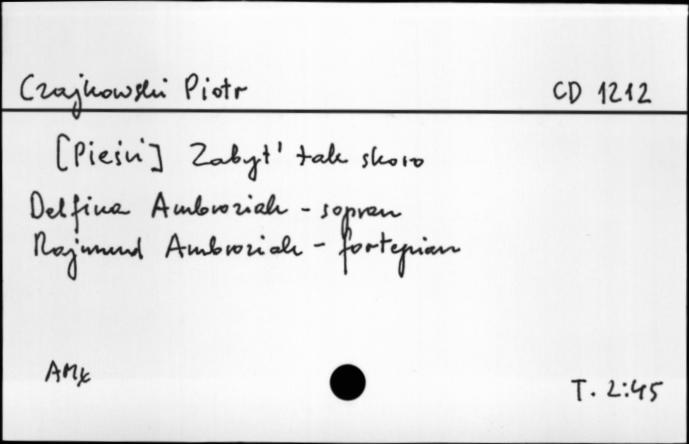 Czajkowski Piotr CD 1212
[Pieśni] Zabyt' tak skoro
Delfina Ambroziak - sopran
Rajmund Ambroziak - fortepian
AMx
T. 2:45